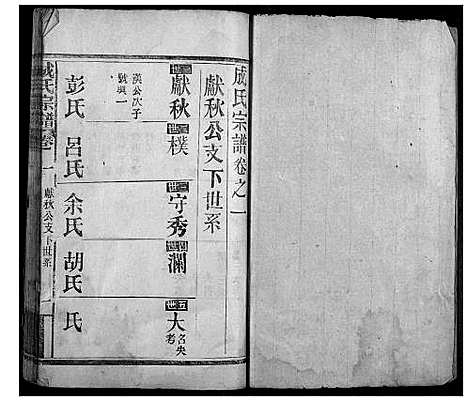 成氏宗譜卷之一
獻秋公支下世系
一世 獻秋 二世 樸 三世 守秀 四世 瀾 五世 大 名失考
漢公次子
號興一
彭氏 呂氏 余氏 胡氏 氏
成氏宗譜 卷一 獻秋公支下世系